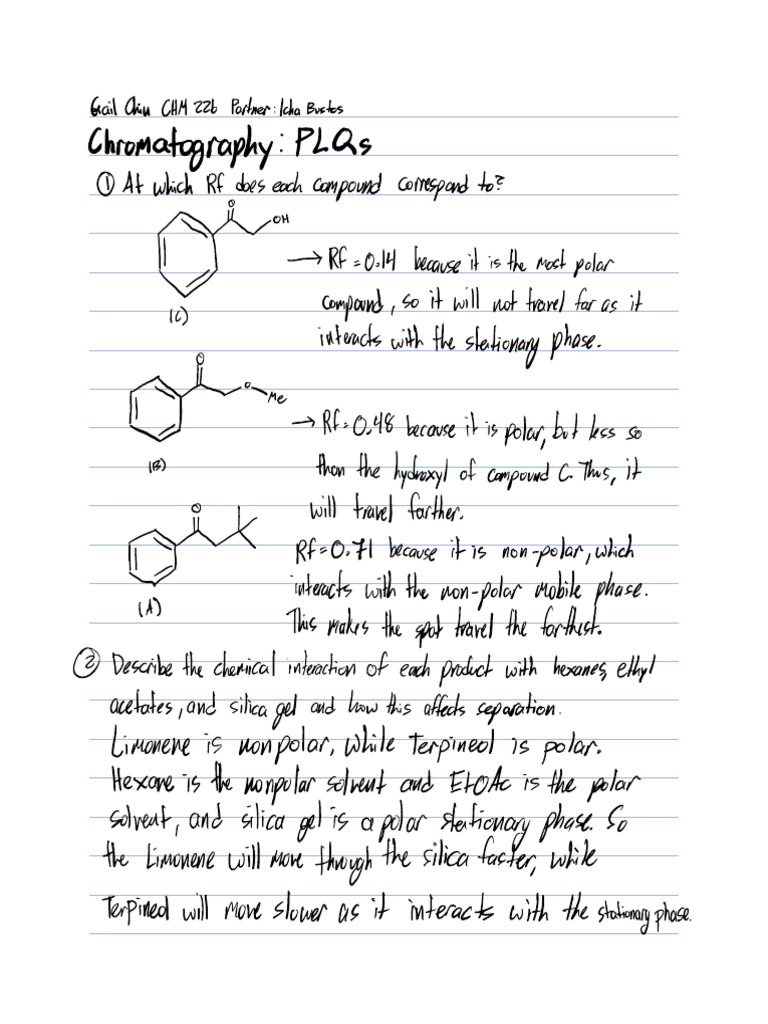 Chiu CHM 22b Partner: Icha Bustos
Chromatography: PLQs
① At which Rf does each compound correspond to?
O
OH
→ Rf = 0.14 because it is the most polar
compound, so it will not travel far as it
interacts with the stationary phase.
(C)
O
O
Me
→ Rf = 0.48 because it is polar, but less so
than the hydroxyl of compound C. Thus, it
will travel farther.
(B)
O
Rf = 0.71 because it is non-polar, which
interacts with the non-polar mobile phase.
This makes the spot travel the farthest.
(A)
② Describe the chemical interaction of each product with hexanes, ethyl
acetates, and silica gel and how this affects separation.
Limonene is nonpolar, while Terpineol is polar.
Hexane is the nonpolar solvent and EtOAc is the polar
solvent, and silica gel is a polar stationary phase. So
the Limonene will move through the silica faster, while
Terpineol will move slower as it interacts with the stationary phase.